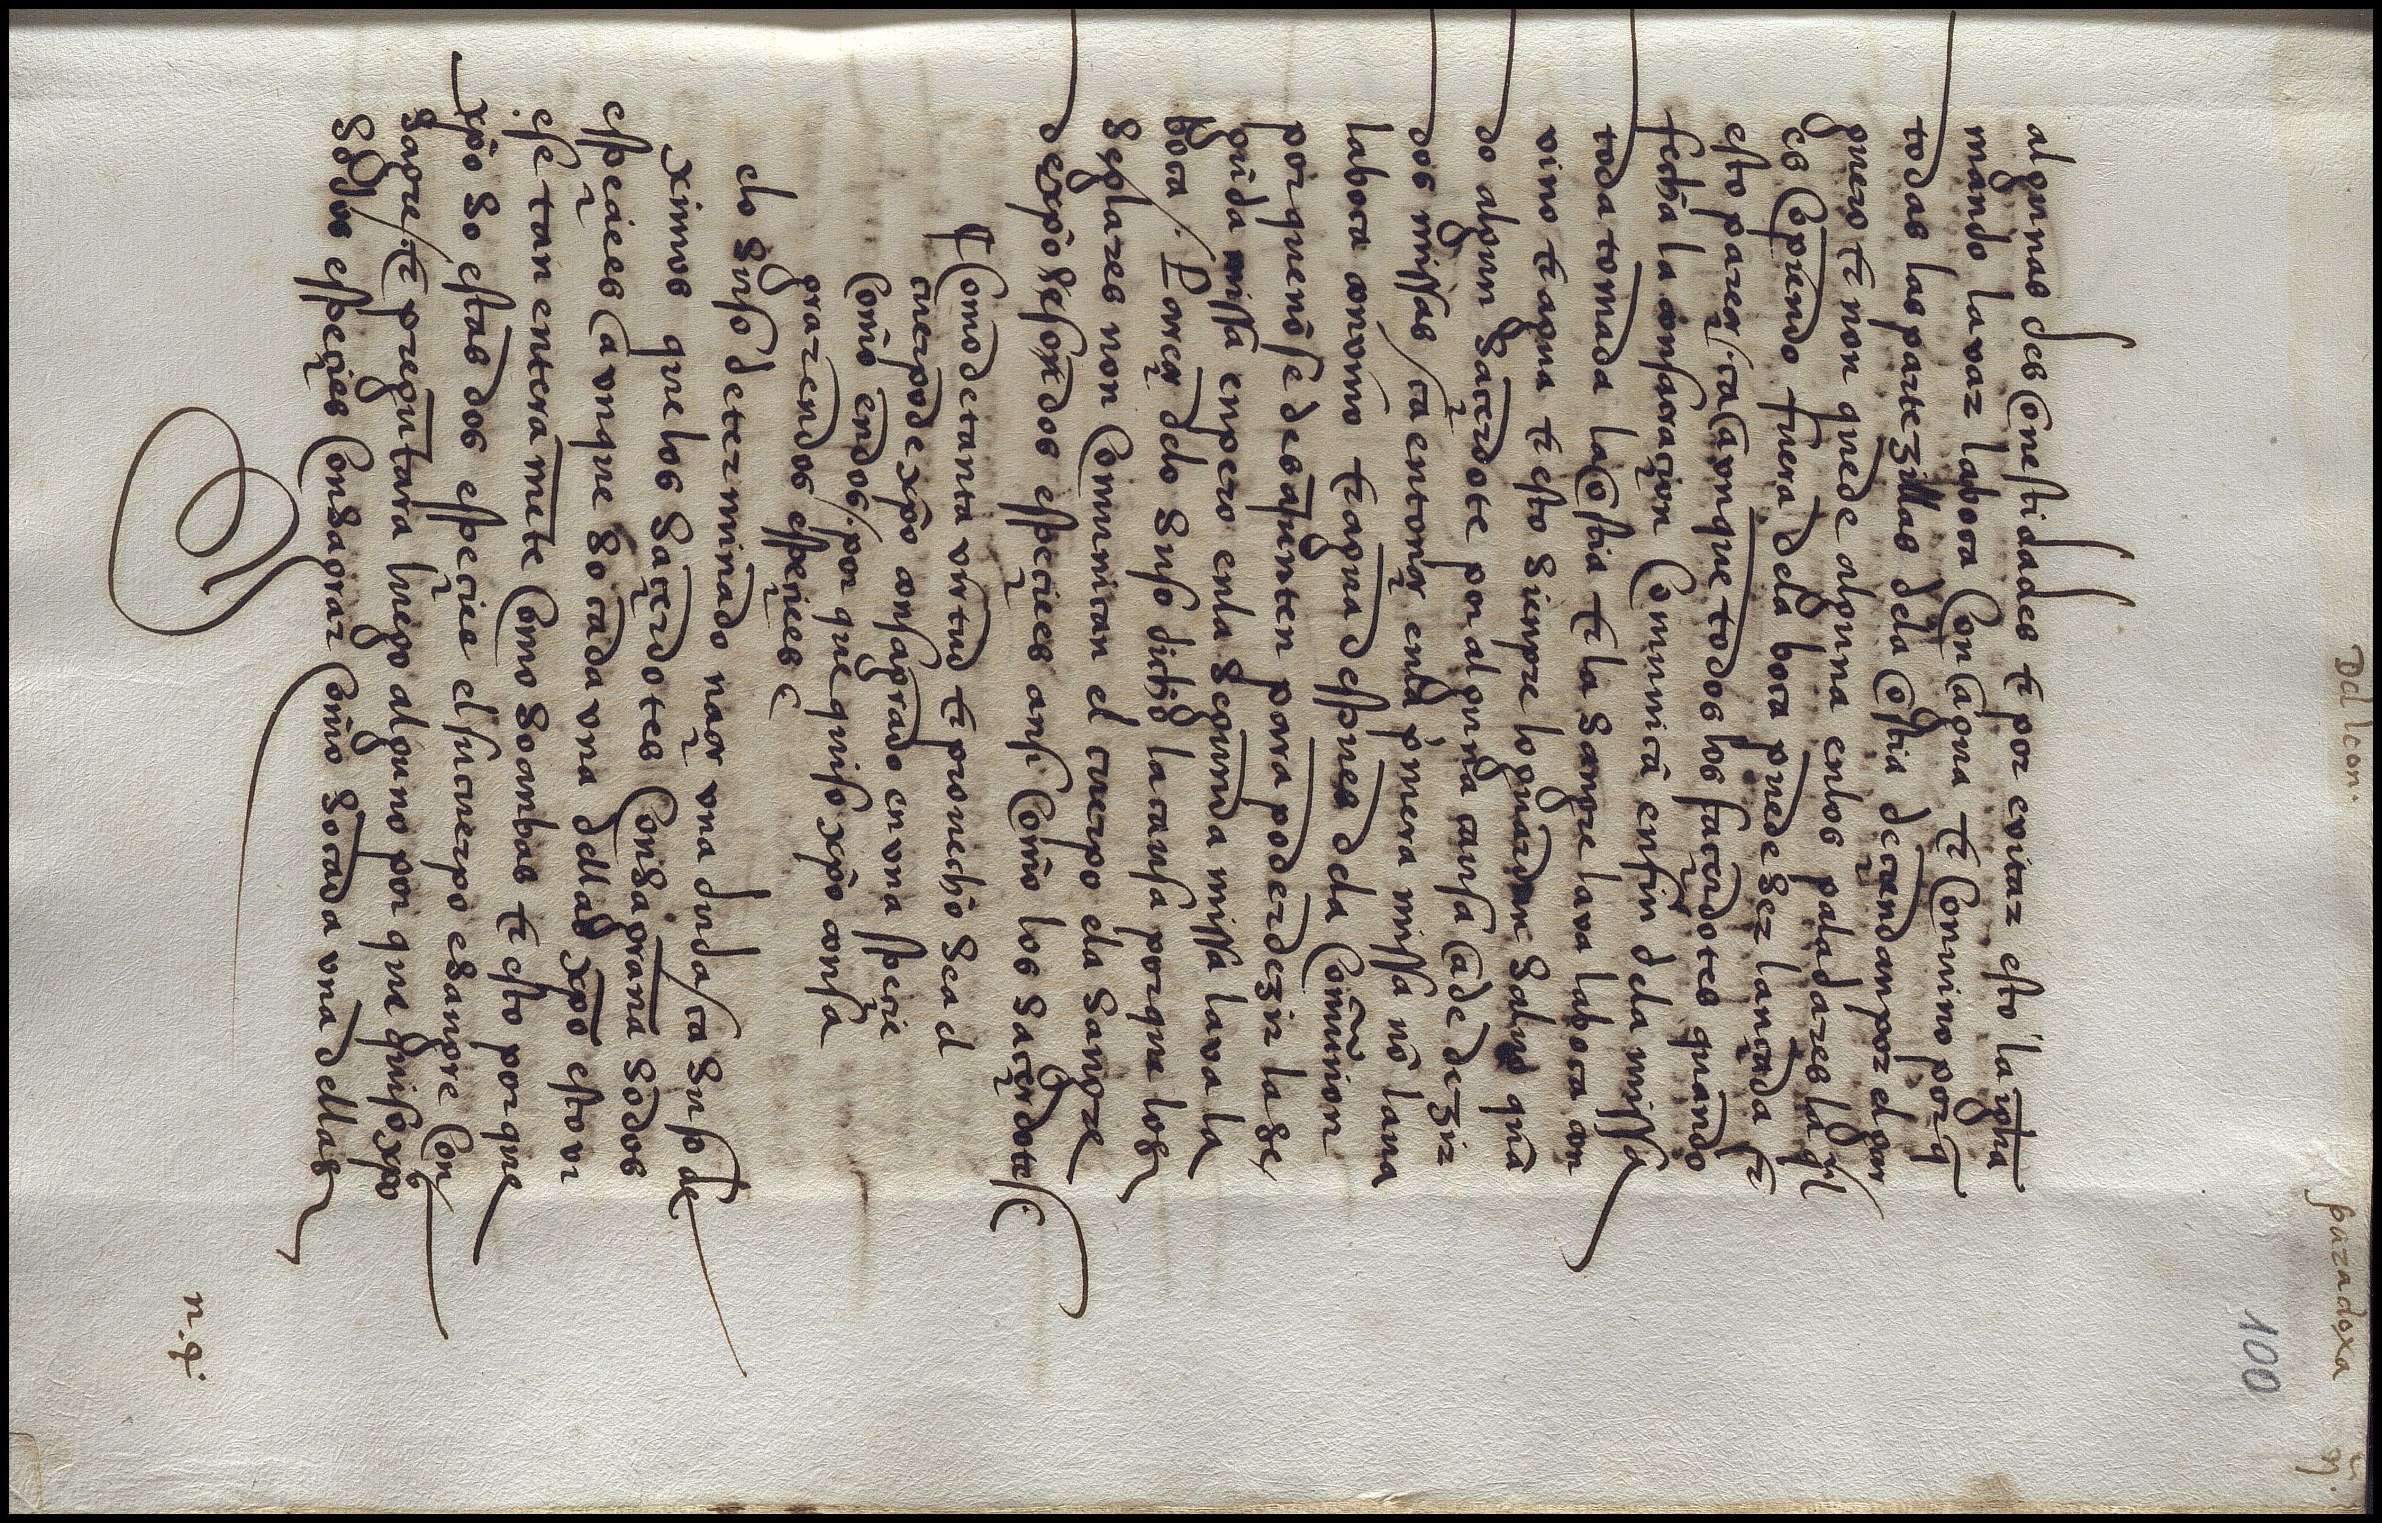 Del leon.
puzadoxa
100
algunas desonestidades & por evitar esto la iglia
mando lavar la boca con agua & con vino por q̃
todas las partezillas dela ostia deçiendan por el gar
guero & non quede alguna enlos paladares la ql̃
es copiendo fuera dela boca puede ser lançada &
esto pareçe ca avnque todos los saçerdotes quando
fecha la consacraçion comunicã en fin dela missa
toda tomada la ostia & la sangre lava la boca con
vino & agua & esto sienpre lo guardan saluo quã
do algun saçerdote por alguna causa a de dezir
dos missas / ca entonçe enla p̓mera missa nõ laua
la boca con vino & agua despues dela comũnion
por que nõ se desayunen para poder dezir la se
gũda missa enpero enla segunda missa lava la
boca /. Pareçe delo suso dicho la causa por que los
seglares non comunican el cuerpo ela sangre
de xp̃o se son dos espeçies ansi como los saçerdotes /.
¶ Como de tanta vrtud & prouecho sea el
cuerpo de xp̃o consagrado en vna speçie
como en dos /. por que quiso xp̃o consa
grar en dos espeçies
elo suso determinado naçe vna duda / ca suso de
ximos que los saçerdotes consagrana so dos
espeçies & avnque so cada vna dellas xp̃o esto vi
ese tan entera mẽte como so anbas & esto por que
xp̃o so estas dos espeçies el su cuerpo e sangre con
sagre /. & pregũtara luego alguno por que quiso xp̃o
so dos espeçies consagrar como so cada vna dellas
n. q.